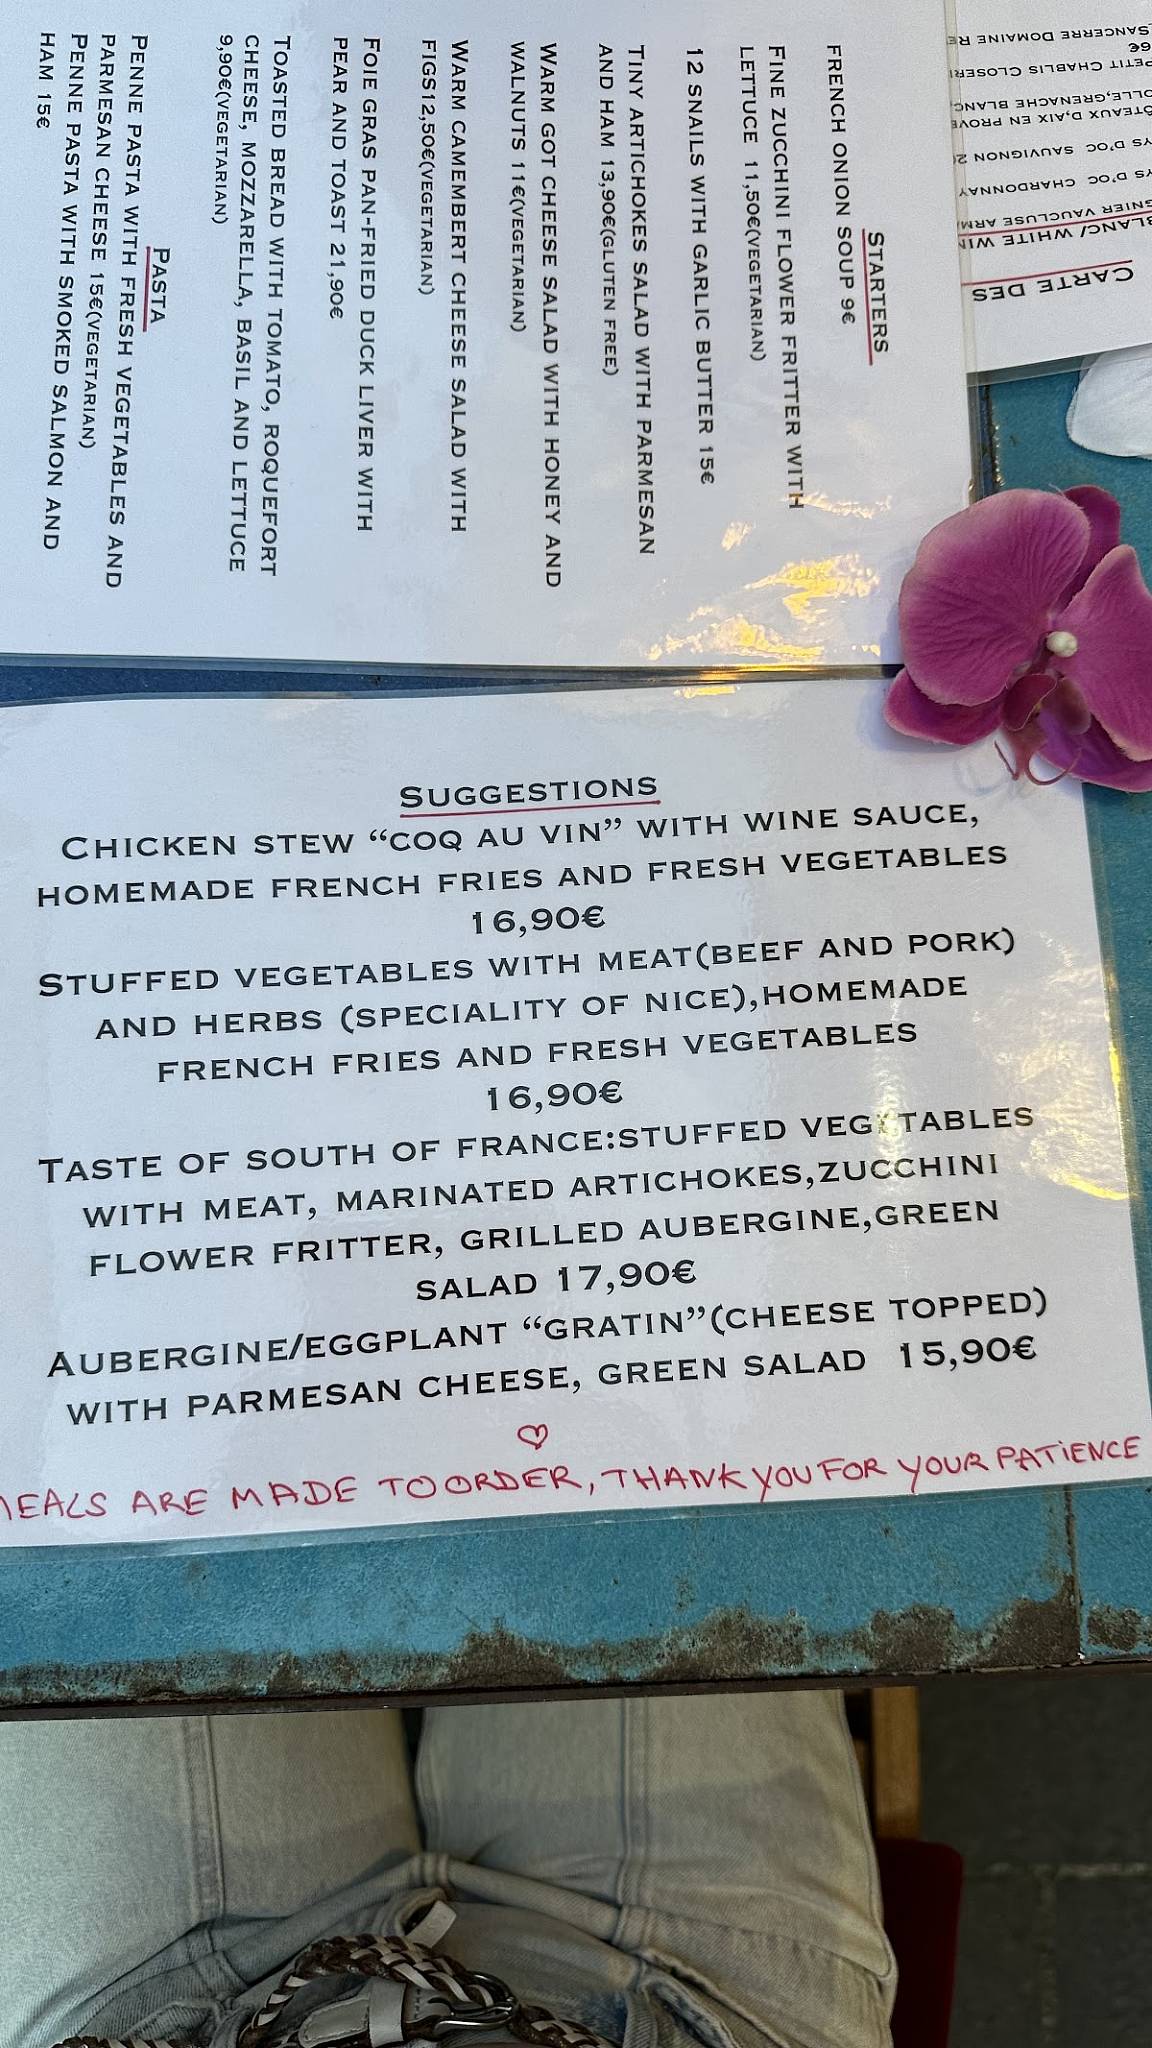 STARTERS
FRENCH ONION SOUP 9€
FINE ZUCCHINI FLOWER FRITTER WITH
LETTUCE 11,50€(VEGETARIAN)
12 SNAILS WITH GARLIC BUTTER 15€
TINY ARTICHOKES SALAD WITH PARMESAN
AND HAM 13,90€(GLUTEN FREE)
WARM GOT CHEESE SALAD WITH HONEY AND
WALNUTS 11€(VEGETARIAN)
WARM CAMEMBERT CHEESE SALAD WITH
FIGS12,50€(VEGETARIAN)
FOIE GRAS PAN-FRIED DUCK LIVER WITH
PEAR AND TOAST 21,90€
TOASTED BREAD WITH TOMATO, ROQUEFORT
CHEESE, MOZZARELLA, BASIL AND LETTUCE
9,90€(VEGETARIAN)
PASTA
PENNE PASTA WITH FRESH VEGETABLES AND
PARMESAN CHEESE 15€(VEGETARIAN)
PENNE PASTA WITH SMOKED SALMON AND
HAM 15€
CARTE DES
BLANC/ WHITE
VAUCLUSE
D'OC CHARDONNAY
D'OC SAUVIGNON
D,AIX EN
GRENACHE BLANC
PETIT CHABLIS
SANCERRE DOMAINE
SUGGESTIONS
CHICKEN STEW “COQ AU VIN” WITH WINE SAUCE,
HOMEMADE FRENCH FRIES AND FRESH VEGETABLES
16,90€
STUFFED VEGETABLES WITH MEAT(BEEF AND PORK)
AND HERBS (SPECIALITY OF NICE),HOMEMADE
FRENCH FRIES AND FRESH VEGETABLES
16,90€
TASTE OF SOUTH OF FRANCE:STUFFED VEGETABLES
WITH MEAT, MARINATED ARTICHOKES,ZUCCHINI
FLOWER FRITTER, GRILLED AUBERGINE,GREEN
SALAD 17,90€
AUBERGINE/EGGPLANT “GRATIN”(CHEESE TOPPED)
WITH PARMESAN CHEESE, GREEN SALAD 15,90€
MEALS ARE MADE TO ORDER, THANK YOU FOR YOUR PATIENCE